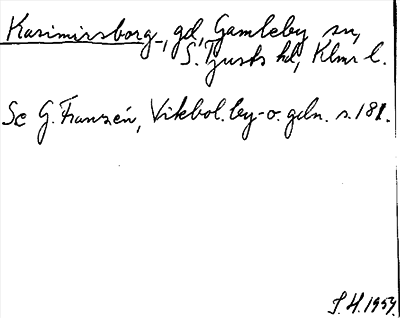 Kasimirsborg, gd, Gamleby sn,
S. Tjusts hd, Klmr l.
Se G. Franzén, Vikbol. by- o. gdn. s. 181.
S. H. 1959.